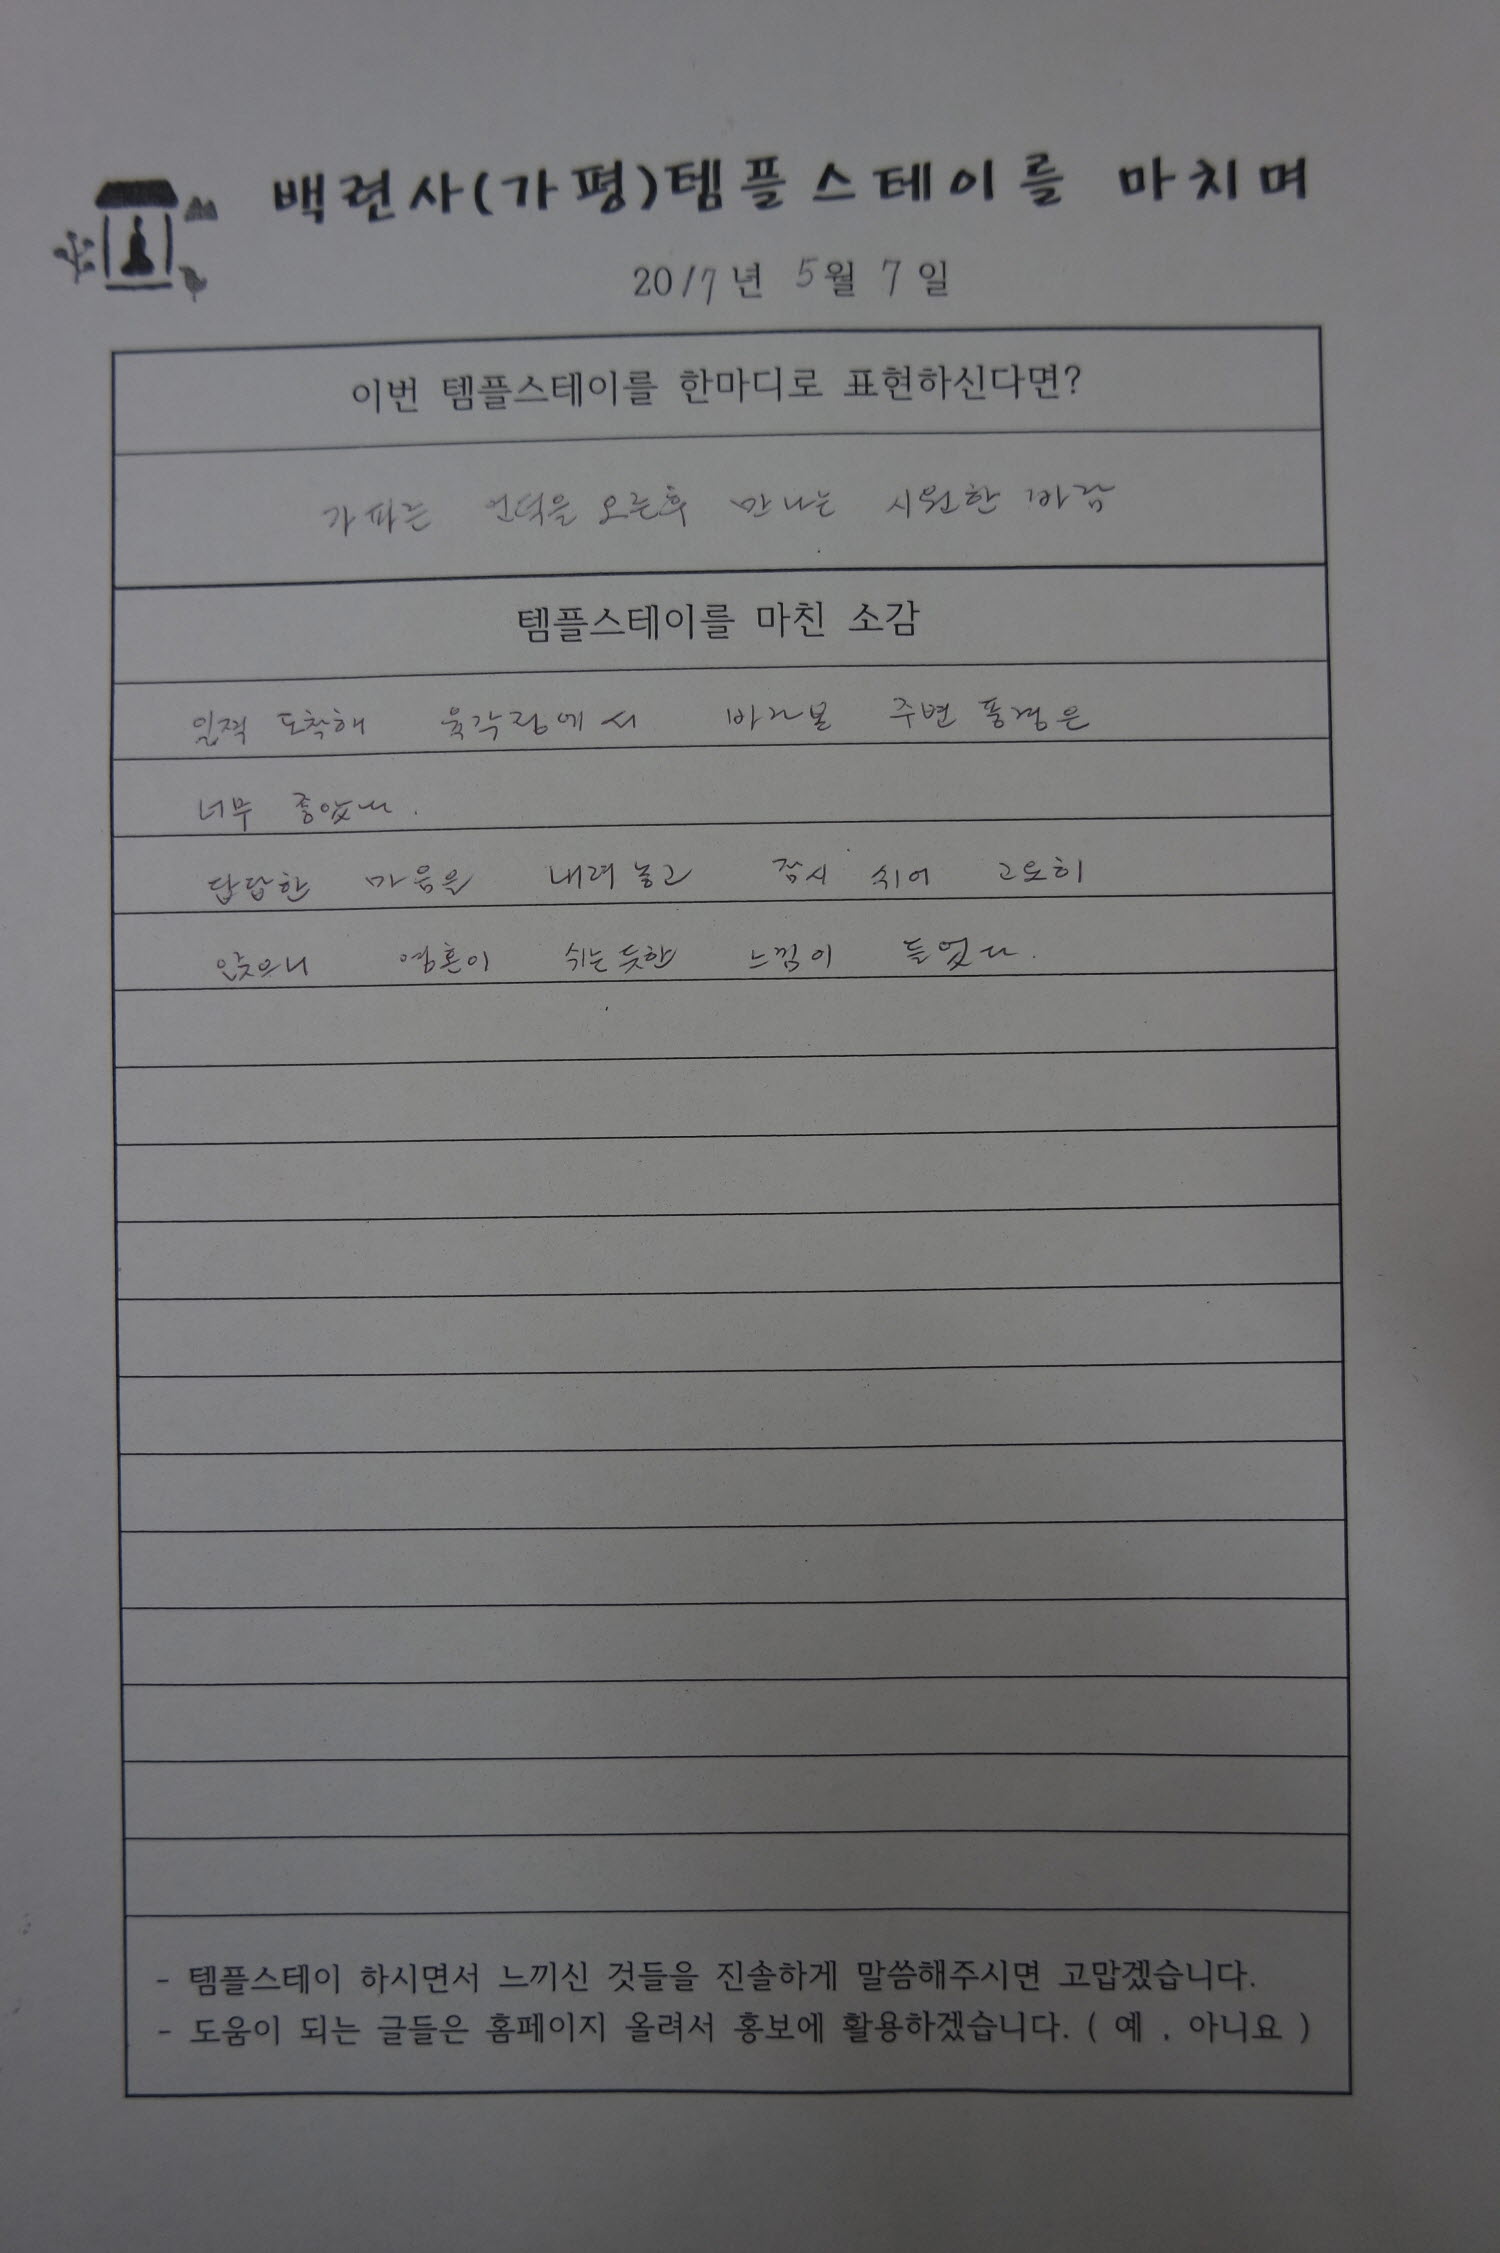 백련사(가평)템플스테이를 마치며
2017년 5월 7일
이번 템플스테이를 한마디로 표현하신다면?
가파른 언덕을 오른후 만나는 시원한 바람
템플스테이를 마친 소감
일찍 도착해 육각정에서 바라본 주변 풍경은
너무 좋았다.
답답한 마음을 내려놓고 잠시 쉬어 고요히
앉으니 영혼이 쉬는듯한 느낌이 들었다.
- 템플스테이 하시면서 느끼신 것들을 진솔하게 말씀해주시면 고맙겠습니다.
- 도움이 되는 글들은 홈페이지 올려서 홍보에 활용하겠습니다. ( 예 , 아니요 )